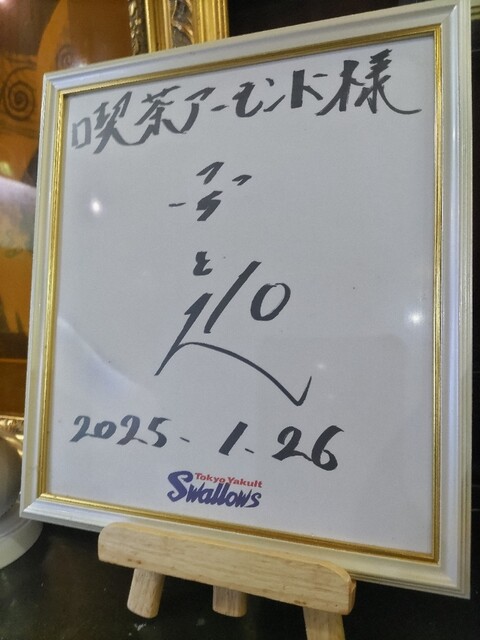 喫茶アーモンド様
2025.1.26
Tokyo Yakult
Swallows